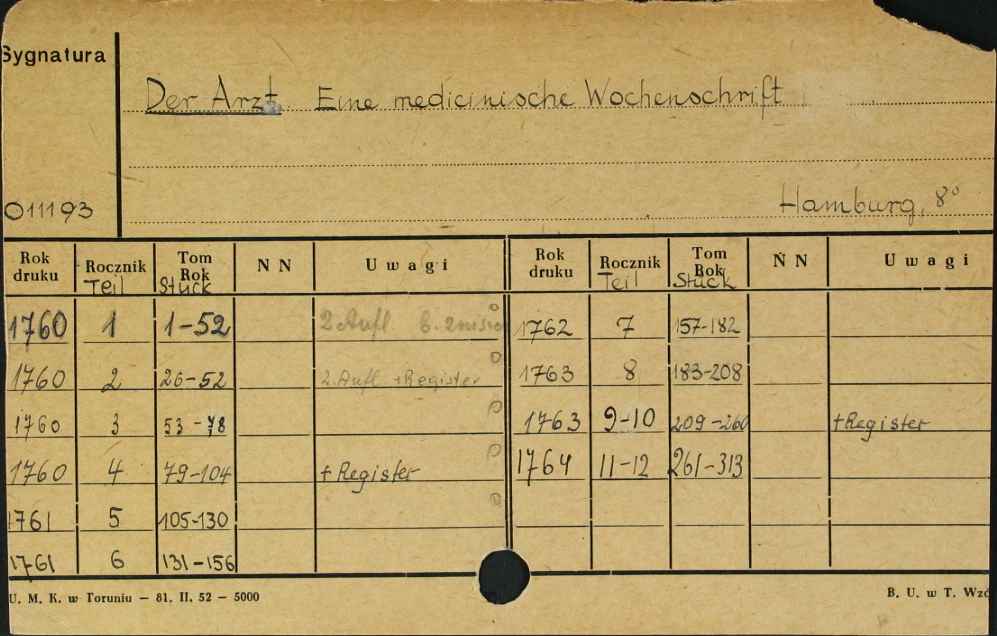 Sygnatura
Der Arzt Eine medicinische Wochenschrift
011193
Hamburg, 8°
Rok druku Rocznik Teil Tom Rok Stück N N Uwagi Rok druku Rocznik Teil Tom Rok Stück N N Uwagi
1760 1 1-52 2. Aufl 1762 7 157-182
1760 2 26-52 2. Aufl +Register 1763 8 183-208
1760 3 53-78 1763 9-10 209-260 +Register
1760 4 79-104 +Register 1764 11-12 261-313
1761 5 105-130
1761 6 131-156
U. M. K. w Toruniu — 81. II. 52 — 5000 B. U. w T.